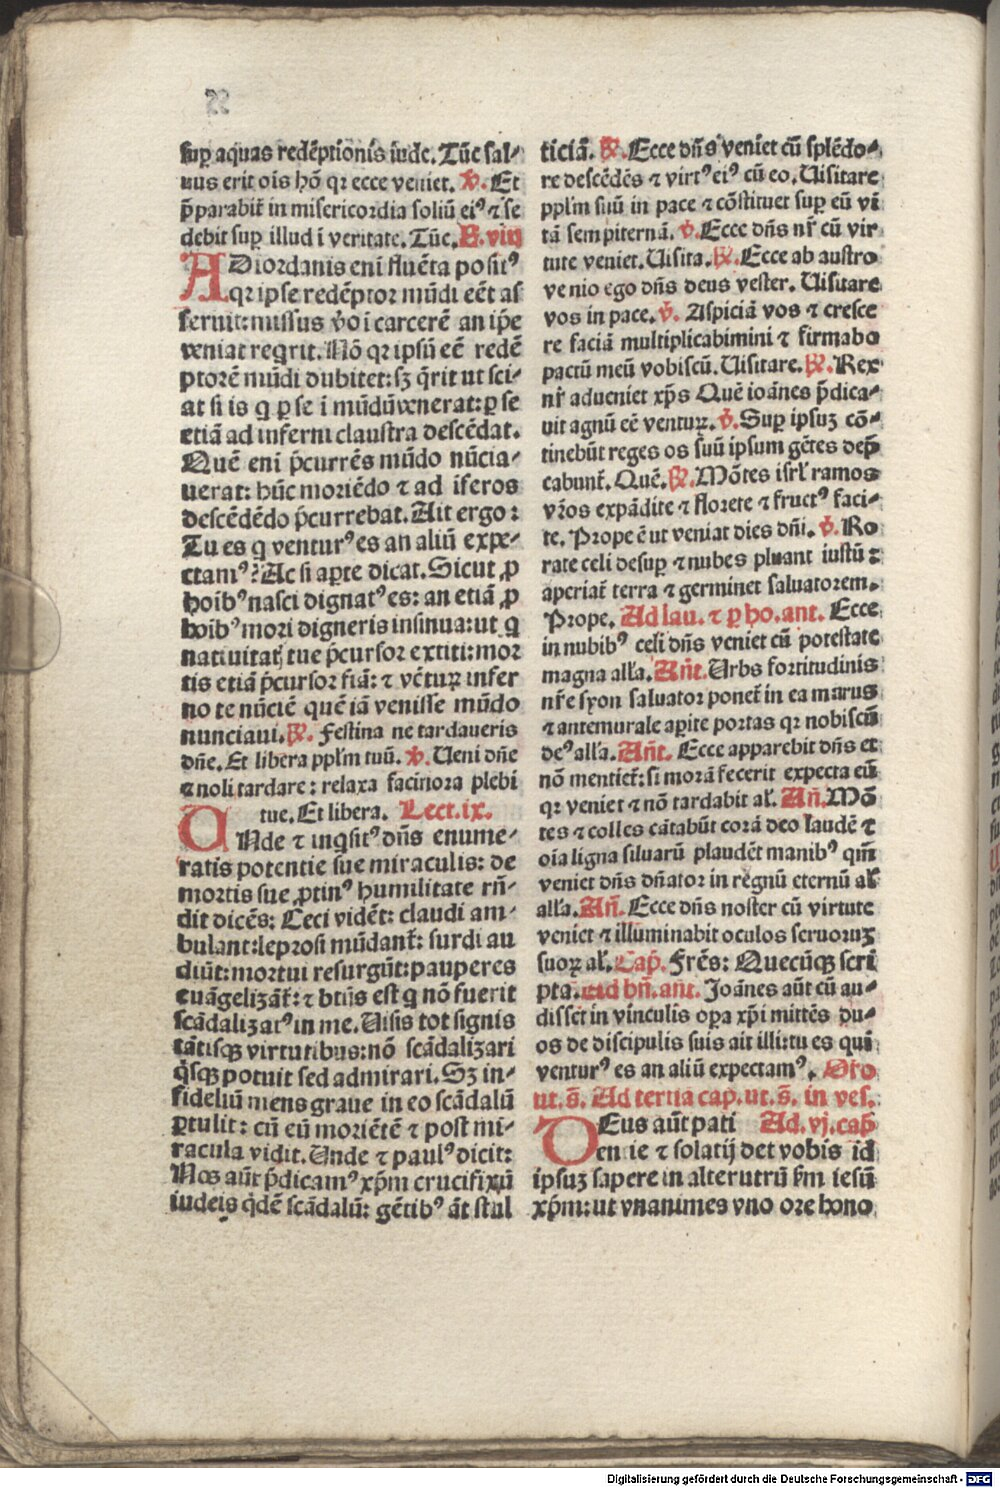 suꝑ aquas redēptionis iude. Tūc sal⸗
uus erit oīs hō qꝛ ecce veniet. ꝟ. Et
p̄parabit̄ in misericordia soliū eiꝰ ⁊ se
debit suꝑ illud ī veritate. Tūc. L. viij
AD iordanis eni fluēta positꝰ
qꝛ ipse redēptor mūdi eēt as
seruit: missus ꝟo ī carcerē an ip̄e
veniat reqrit. Nō qꝛ ipsū eē redē
ptorē mūdi dubitet: sꝫ q̄rit ut sci⸗
at si is q ꝑ se ī mūdū venerat: ꝑ se
etiā ad inferni claustra descēdat.
Quē eni p̄currēs mūdo nūcia⸗
uerat: hūc moriēdo ⁊ ad īferos
descēdēdo p̄currebat. Ait ergo:
Tu es q venturꝰ es an aliū expe⸗
ctamꝰ? Ac si aꝑte dicat. Sicut ꝓ
hoībꝰ nasci dignatꝰ es: an etiā ꝓ
hoībꝰ mori digneris insinua: ut q
natiuitatꝭ tue p̄cursor extiti: mor
tis etiā p̄cursor fiā: ⁊ vētuꝝ infer
no te nūciē quē iā venisse mūdo
nunciaui. ꝶ. Festina ne tardaueris
dn̄e. Et libera pplm̄ tuū. ꝟ. Veni dn̄e
⁊ noli tardare: relaxa facinora plebi
tue. Et libera. Lect. ix.
VNde ⁊ inqsitꝰ dn̄s enume⸗
ratis potentie sue miraculis: de
mortis sue ꝓtinꝰ humilitate rn̄⸗
dit dicēs: Ceci vidēt: claudi am⸗
bulant: leprosi mūdant̄: surdi au
diūt: mortui resurgūt: pauperes
euāgelizāt̄: ⁊ bt̄us est q nō fuerit
scādalizatꝰ in me. Visis tot signis
tātisqꝫ virtutibus: nō scādalizari
q̇sqꝫ potuit sed admirari. Sꝫ in⸗
fideliū mens graue in eo scādalū
ꝑtulit: cū eū moriētē ⁊ post mi⸗
racula vidit. Unde ⁊ paulꝰ dicit:
Nos aūt p̄dicamꝰ xp̄m crucifixū
iudeis q̇dē scādalū: gētibꝰ āt stul
ticiā. ꝶ. Ecce dn̄s veniet cū splēdo⸗
re descēdēs ⁊ virtꝰ eiꝰ cū eo. Uisitare
pplm̄ suū in pace ⁊ cōstituet suꝑ eū vi
tā sempiternā. ꝟ. Ecce dn̄s nr̄ cū vir
tute veniet. Uisita. ꝶ. Ecce ab austro
venio ego dn̄s deus vester. Uisitare
vos in pace. ꝟ. Aspiciā vos ⁊ cresce
re faciā multiplicabimini ⁊ firmabo
pactū meū vobiscū. Uisitare. ꝶ. Rex
nr̄ adueniet xp̄s Quē ioānes p̄dica⸗
uit agnū eē ventuꝝ. ꝟ. Suꝑ ipsuꝫ cō⸗
tinebūt reges os suū ipsum gētes dep̄
cabunt̄. Quē. ꝶ. Mōtes isrl̄ ramos
vr̄os expādite ⁊ florete ⁊ fructꝰ faci⸗
te. Prope ē ut veniat dies dn̄i. ꝟ. Ro
rate celi desuꝑ ⁊ nubes pluant iustū:
aperiat̄ terra ⁊ germinet saluatorem.
Prope. Ad lau. ⁊ ꝑ ho. ant. Ecce
in nubibꝰ celi dn̄s veniet cū potestate
magna alla. Ant̄. Urbs fortitudinis
nr̄e syon saluator ponet̄ in ea murus
⁊ antemurale aꝑite portas qꝛ nobiscū
deꝰ alla. Ant̄. Ecce apparebit dn̄s et
nō mentiet̄: si morā fecerit expecta eū
qꝛ veniet ⁊ nō tardabit al̄. An̄. Mō
tes ⁊ colles cātabūt corā deo laudē ⁊
oīa ligna siluarū plaudēt manibꝰ qm̄
veniet dn̄s dn̄ator in regnū eternū al̄
alla. An̄. Ecce dn̄s noster cū virtute
veniet ⁊ illuminabit oculos seruoruꝫ
suoꝝ al̄. Cap̄. Fr̄es: Quecūqꝫ scri
pta. Ad bn̄. ant̄. Joānes aūt cū au⸗
disset in vinculis oꝑa xp̄i mittēs du⸗
os de discipulis suis ait illi: tu es qui
venturꝰ es an aliū expectamꝰ. Oro
ut. s̄. Ad tertia cap. ut. s̄. in ves.
DEus aūt pati Ad. vj. cap̄
entie ⁊ solatij det vobis id
ipsuꝫ sapere in alterutrū s̄m iesū
xp̄m: ut vnanimes vno ore hono
Digitalisierung gefördert durch die Deutsche Forschungsgemeinschaft - DFG